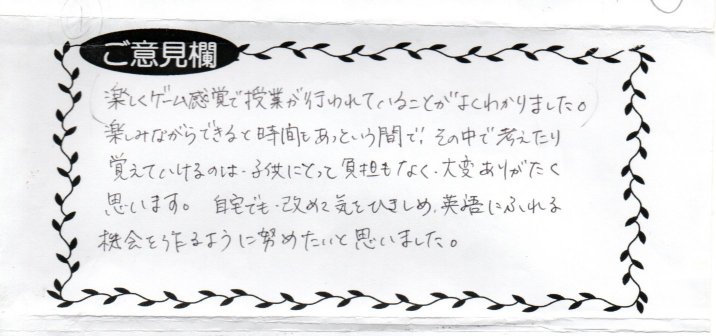 ご意見欄
楽しくゲーム感覚で授業が行われていることがよくわかりました。
楽しみながらできると時間もあっという間で、その中で考えたり
覚えていけるのは、子供にとって負担もなく、大変ありがたく
思います。 自宅でも、改めて気をひきしめ、英語にふれる
機会を作るように努めたいと思いました。